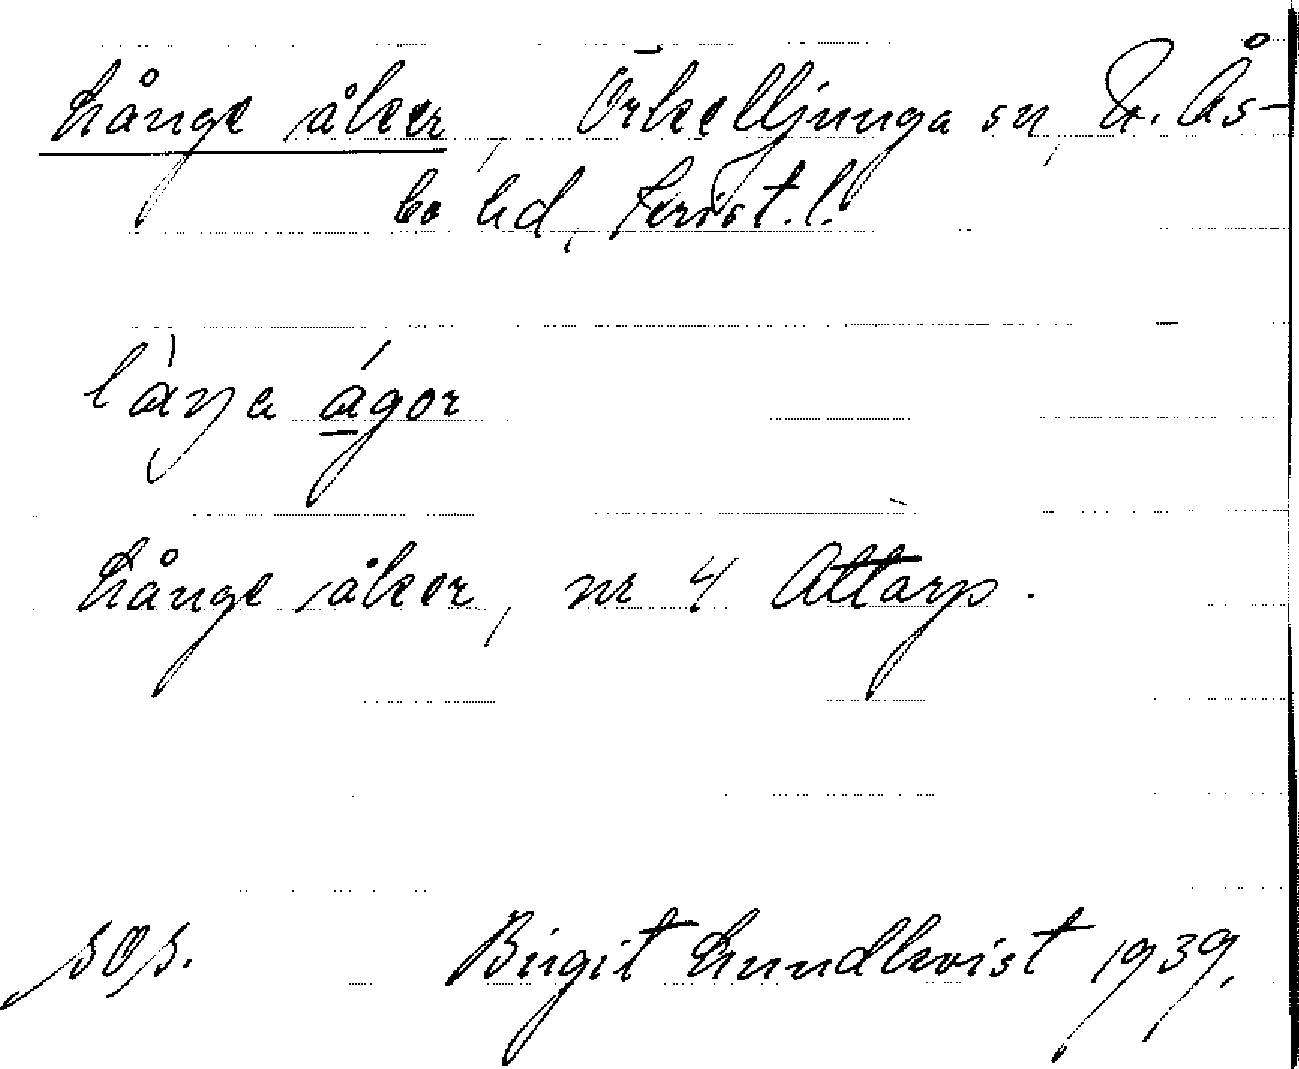 Långe åker, Örkelljunga sn, N. Ås-
bo hd, Krist. l.
làŋa ágor
Långe åker, nr 4 Attarp.
sOs. Birgit Lundkvist 1939.